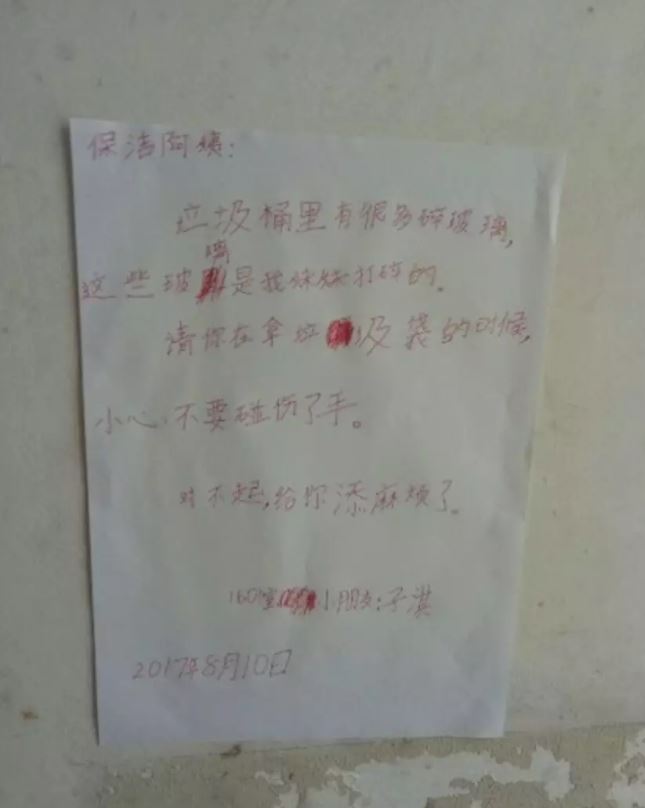 保洁阿姨:
垃圾桶里有很多碎玻璃,
这些玻璃是我妹妹打碎的.
请你在拿垃圾袋的时候,
小心,不要碰伤了手。
对不起,给你添麻烦了.
1601室小朋友:子淇
2017年8月10日